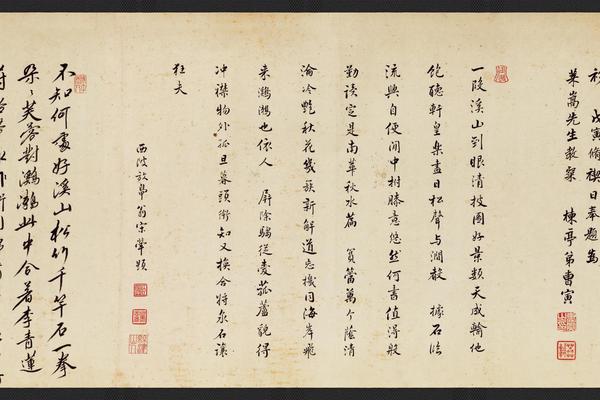 戊寅脩禊日奉題為
萊嵩先生教 楝亭弟曹寅
一段溪山到眼清披圖好景類天成輸他
飽聽軒皇樂盡日松聲與澗聲 據石臨
流興自便閒中拊膝意悠然何書值得殷
勤讀定是南華秋水篇 篔簹萬个陰清
淪冷艷秋花幾簇新解道忘機同海岸飛
來鸂鶒也依人 屏除騶從愛菰蘆貌得
沖襟物外孤且頭銜知又換合將泉石讓
狂夫
西陂放鴨翁宋犖題
不知何處好溪山松竹千竿石一拳
朵々芙蓉對鸂鶒此中合著李青蓮